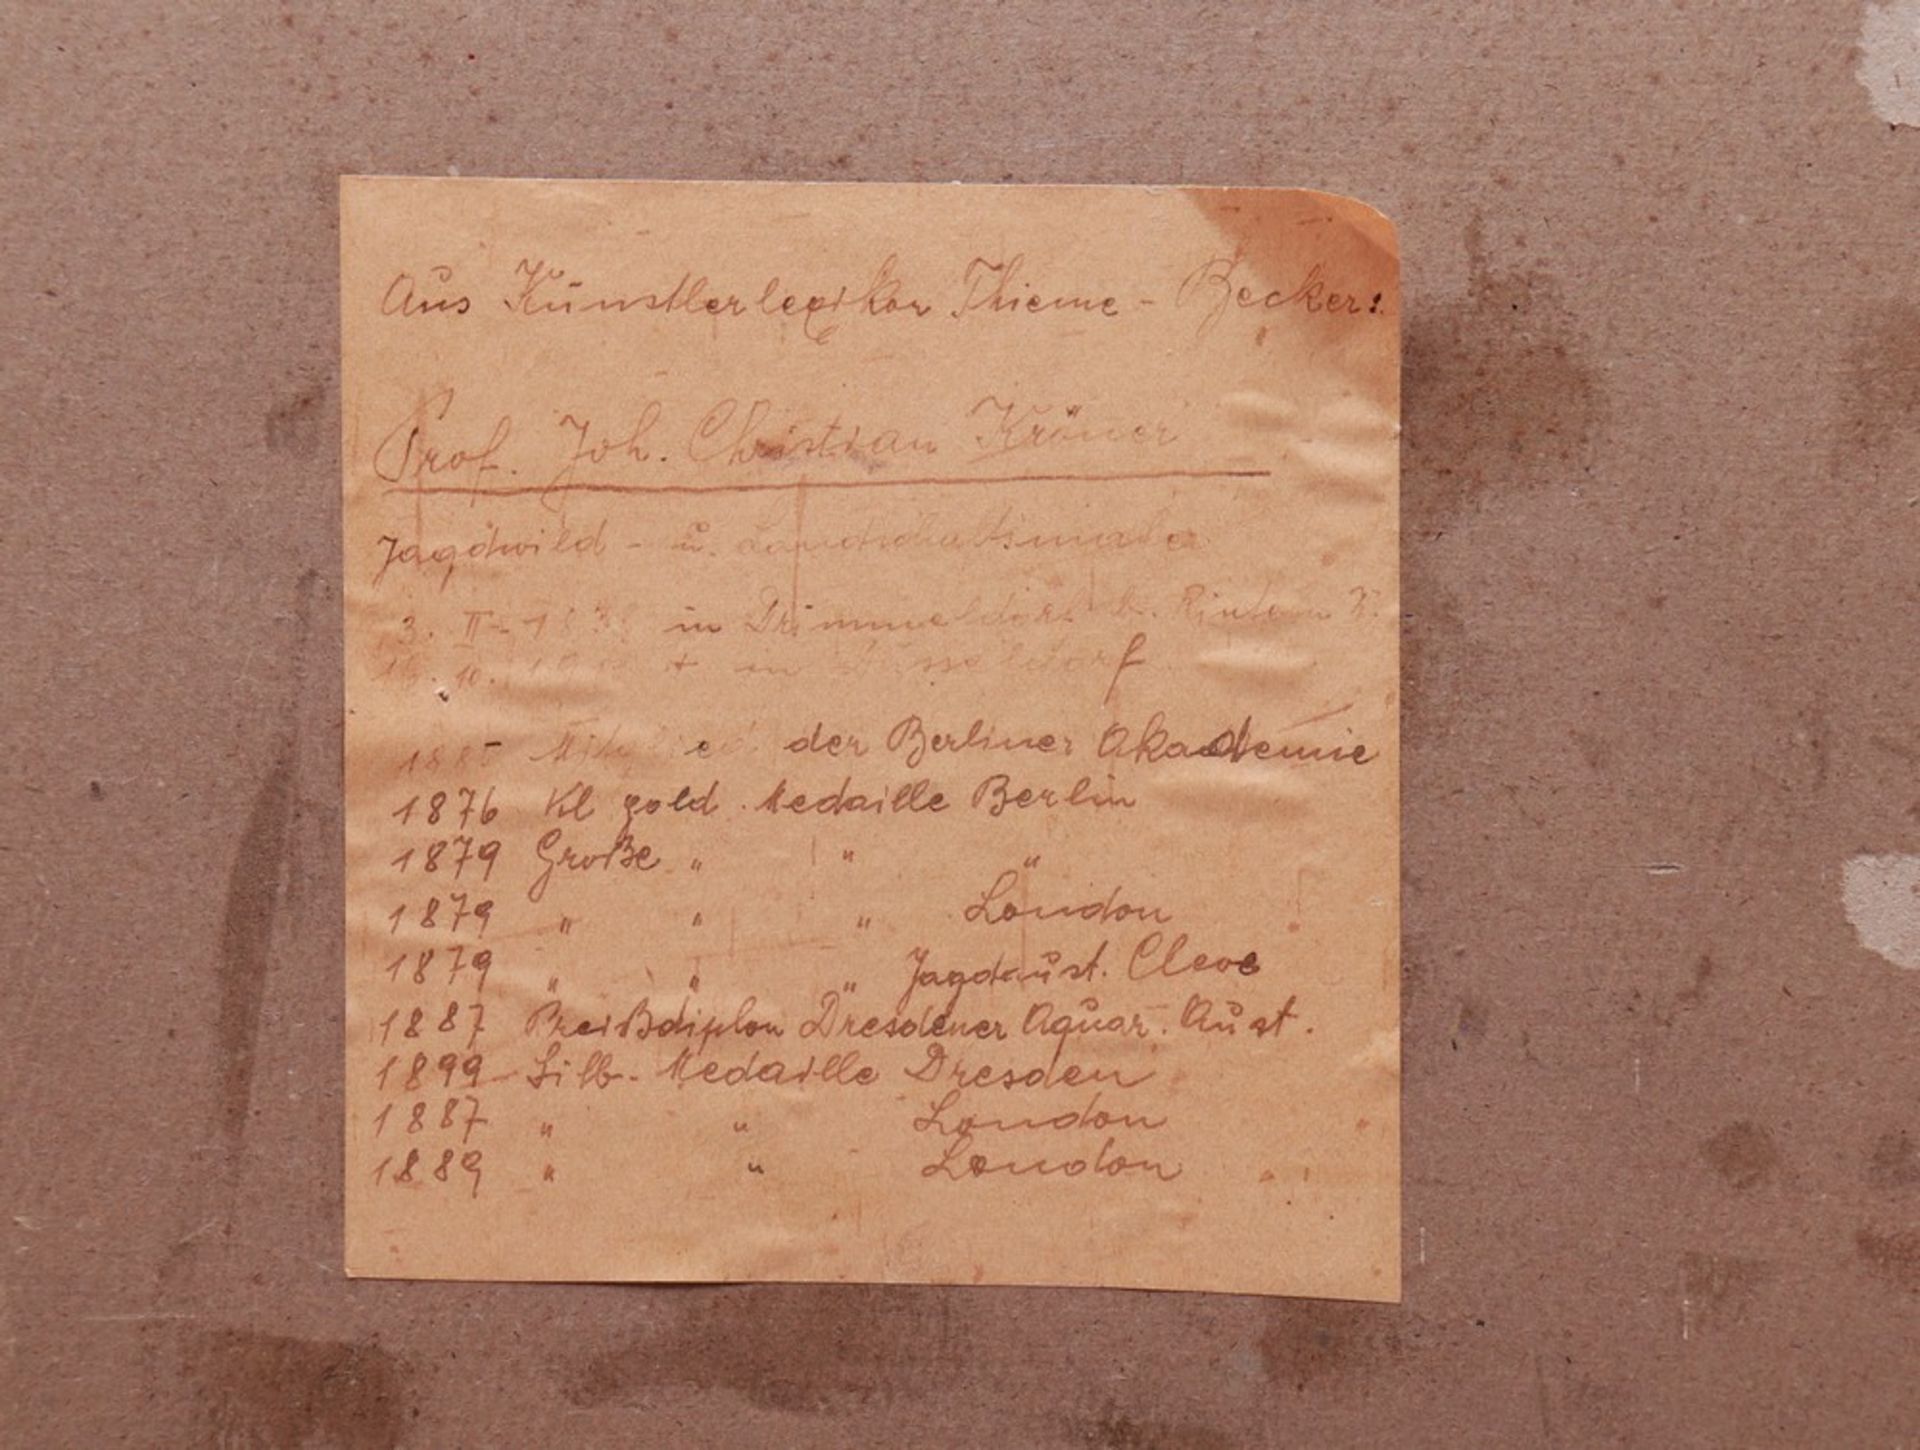 Aus Künstlerlexikon Thieme - Becker:
Prof. Joh. Christian Kröner
Jagdwild - u. Landschaftsmaler
3. II - 1838 in
10. + in Düsseldorf
1885 Mitglied der Berliner Akademie
1876 Kl gold. Medaille Berlin
1879 Große " " "
1879 " " " London
1879 " " " Jagdaust. Cleve
1887 Preißdiplom Dresdener Aquar. Aust.
1899 Silb. Medaille Dresden
1887 " " London
1889 " " London